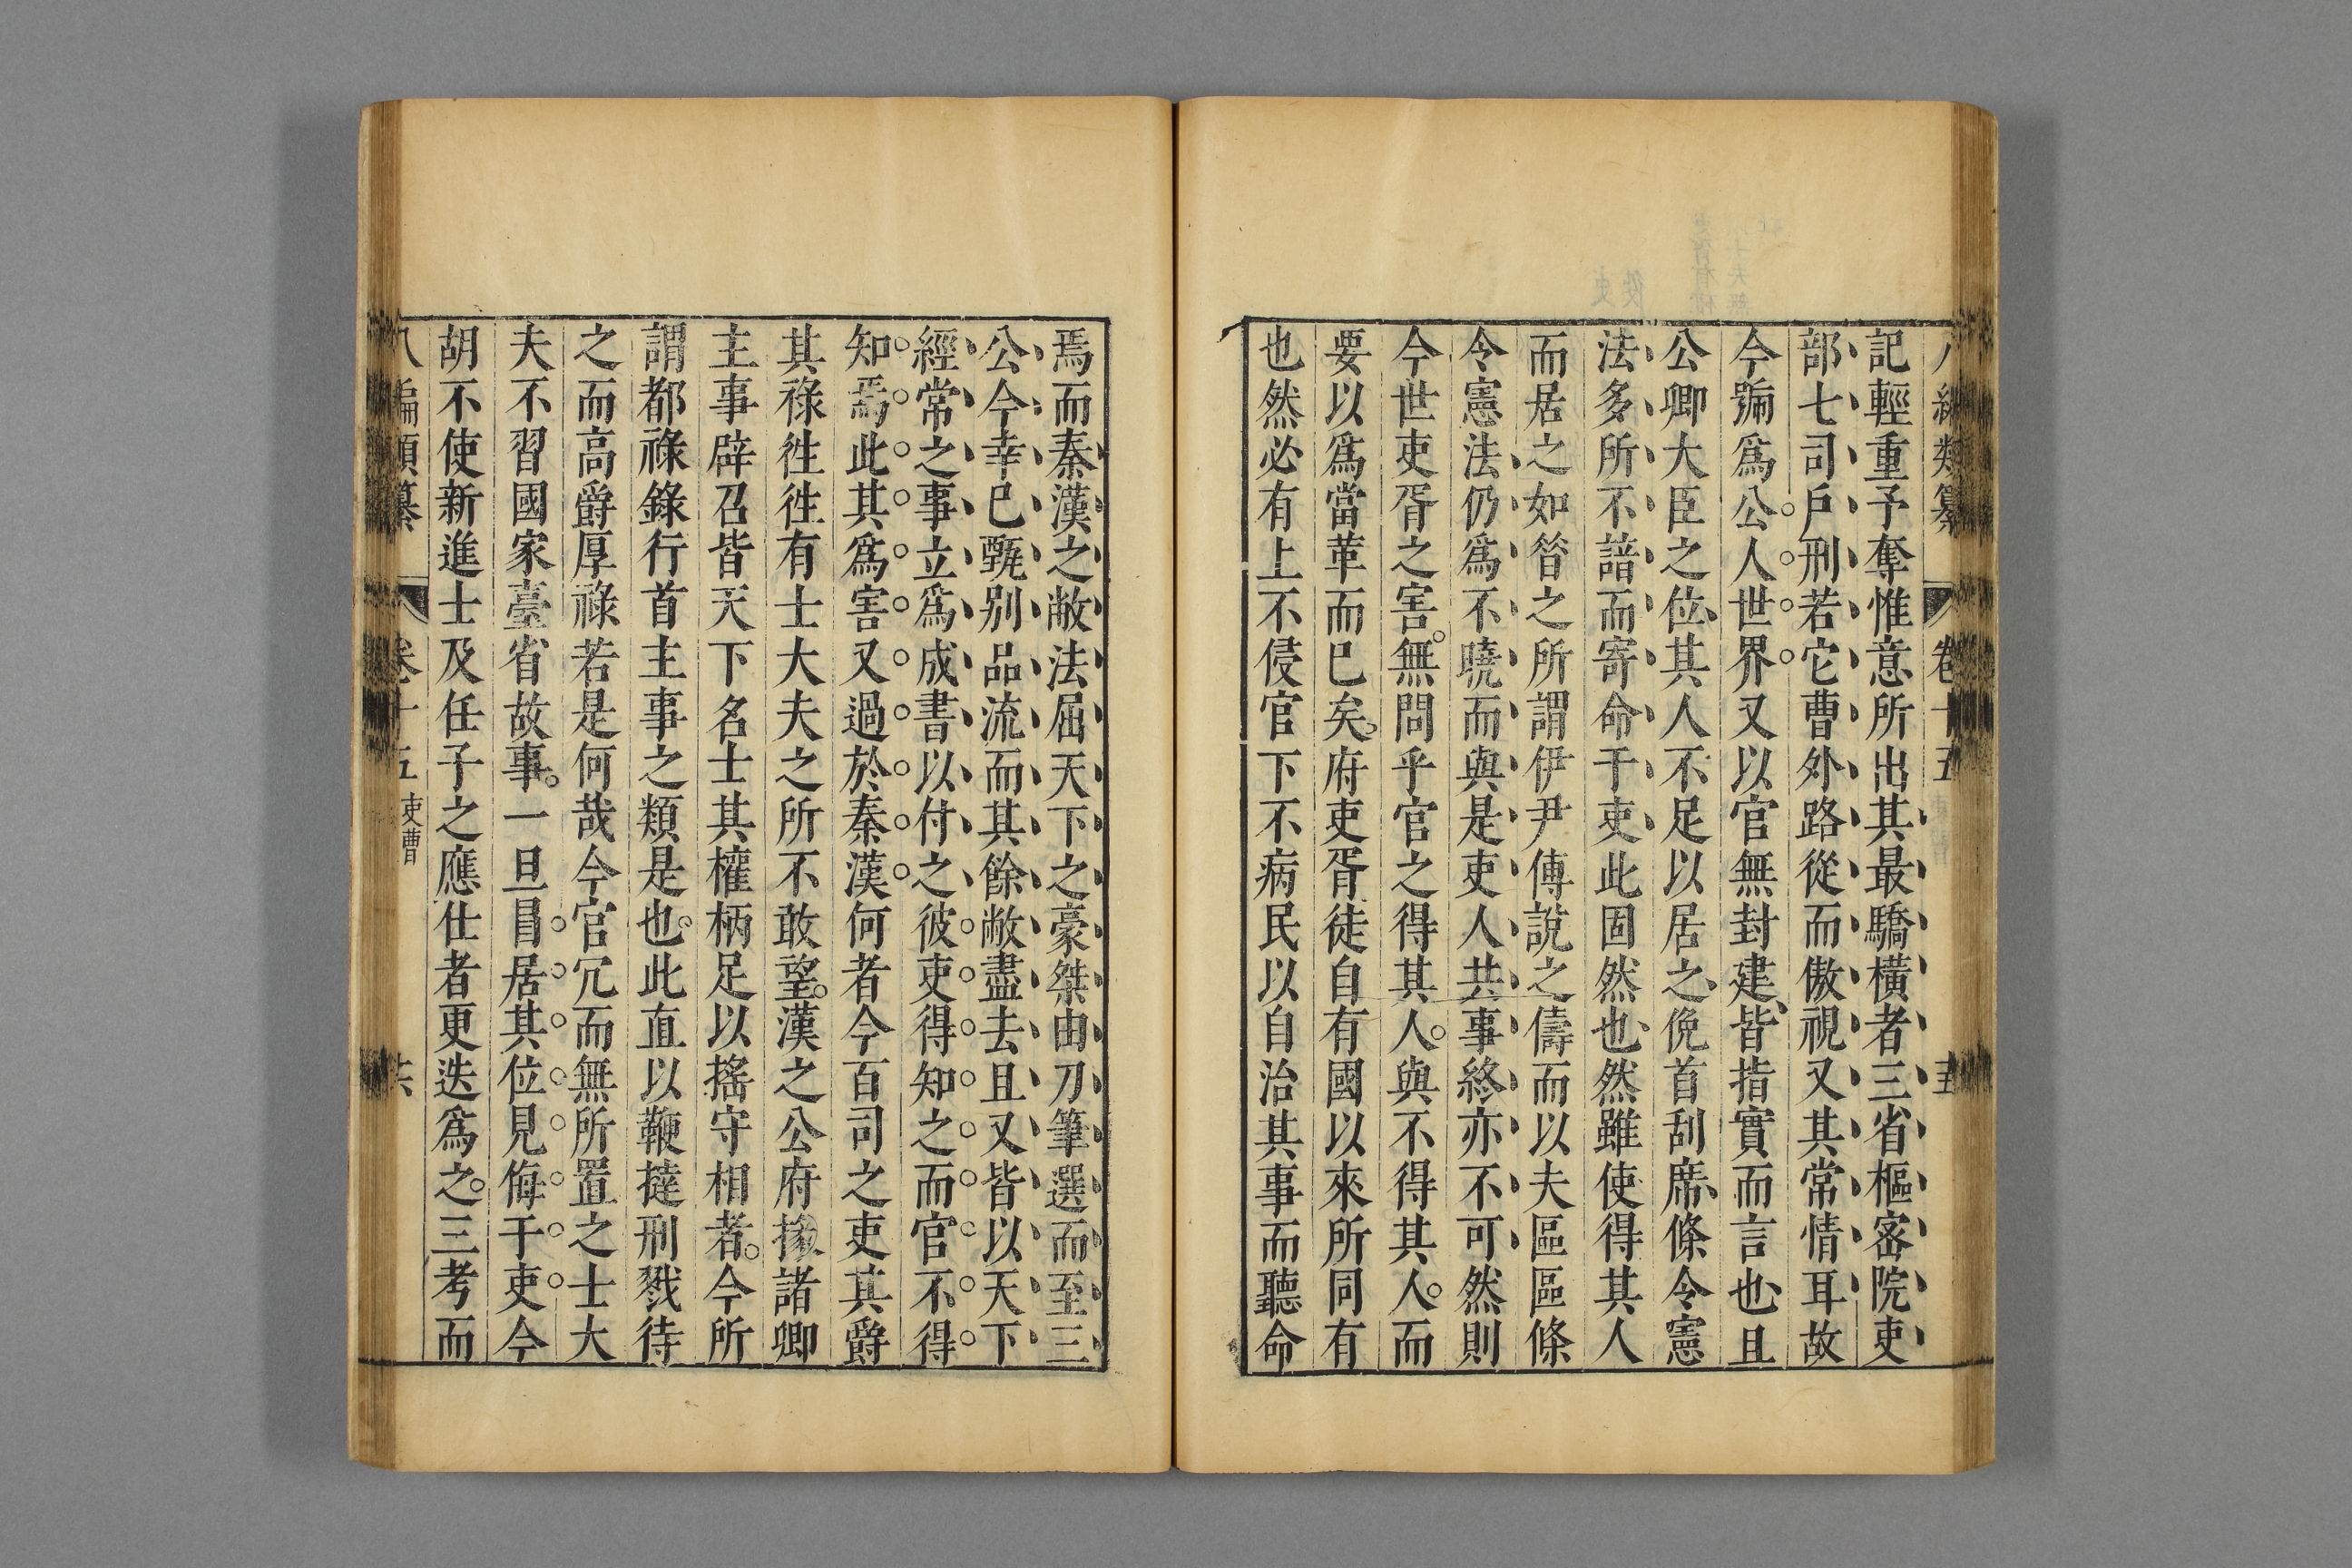 記輕重予奪惟意所出其最驕橫者三省樞密院吏
部七司戶刑若它曹外路從而傲視又其常情耳故
今號爲公人世界又以官無封建皆指實而言也且
公卿大臣之位其人不足以居之俛首刮席條令憲
法多所不諳而寄命于吏此固然也然雖使得其人
而居之如昝之所謂伊尹傅說之儔而以夫區區條
令憲法仍爲不曉而與是吏人共事終亦不可然則
今世吏胥之害無問乎官之得其人與不得其人而
要以爲當革而已矣府吏胥徒自有國以來所同有
也然必有上不侵官下不病民以自治其事而聽命
焉而秦漢之敝法屈天下之豪桀由刀筆選而至三
公今幸已甄别品流而其餘敝盡去且又皆以天下
經常之事立爲成書以付之彼吏得知之而官不得
知焉此其爲害又過於秦漢何者今百司之吏其爵
其祿徃徃有士大夫之所不敢望漢之公府掾諸卿
主事辟召皆天下名士其權柄足以搖守相者今所
謂都祿錄行首主事之類是也此直以鞭撻刑戮待
之而高爵厚祿若是何哉今官冗而無所置之士大
夫不習國家臺省故事一旦冒居其位見侮于吏今
胡不使新進士及任子之應仕者更迭爲之三考而
八編類纂 卷十五 吏曹